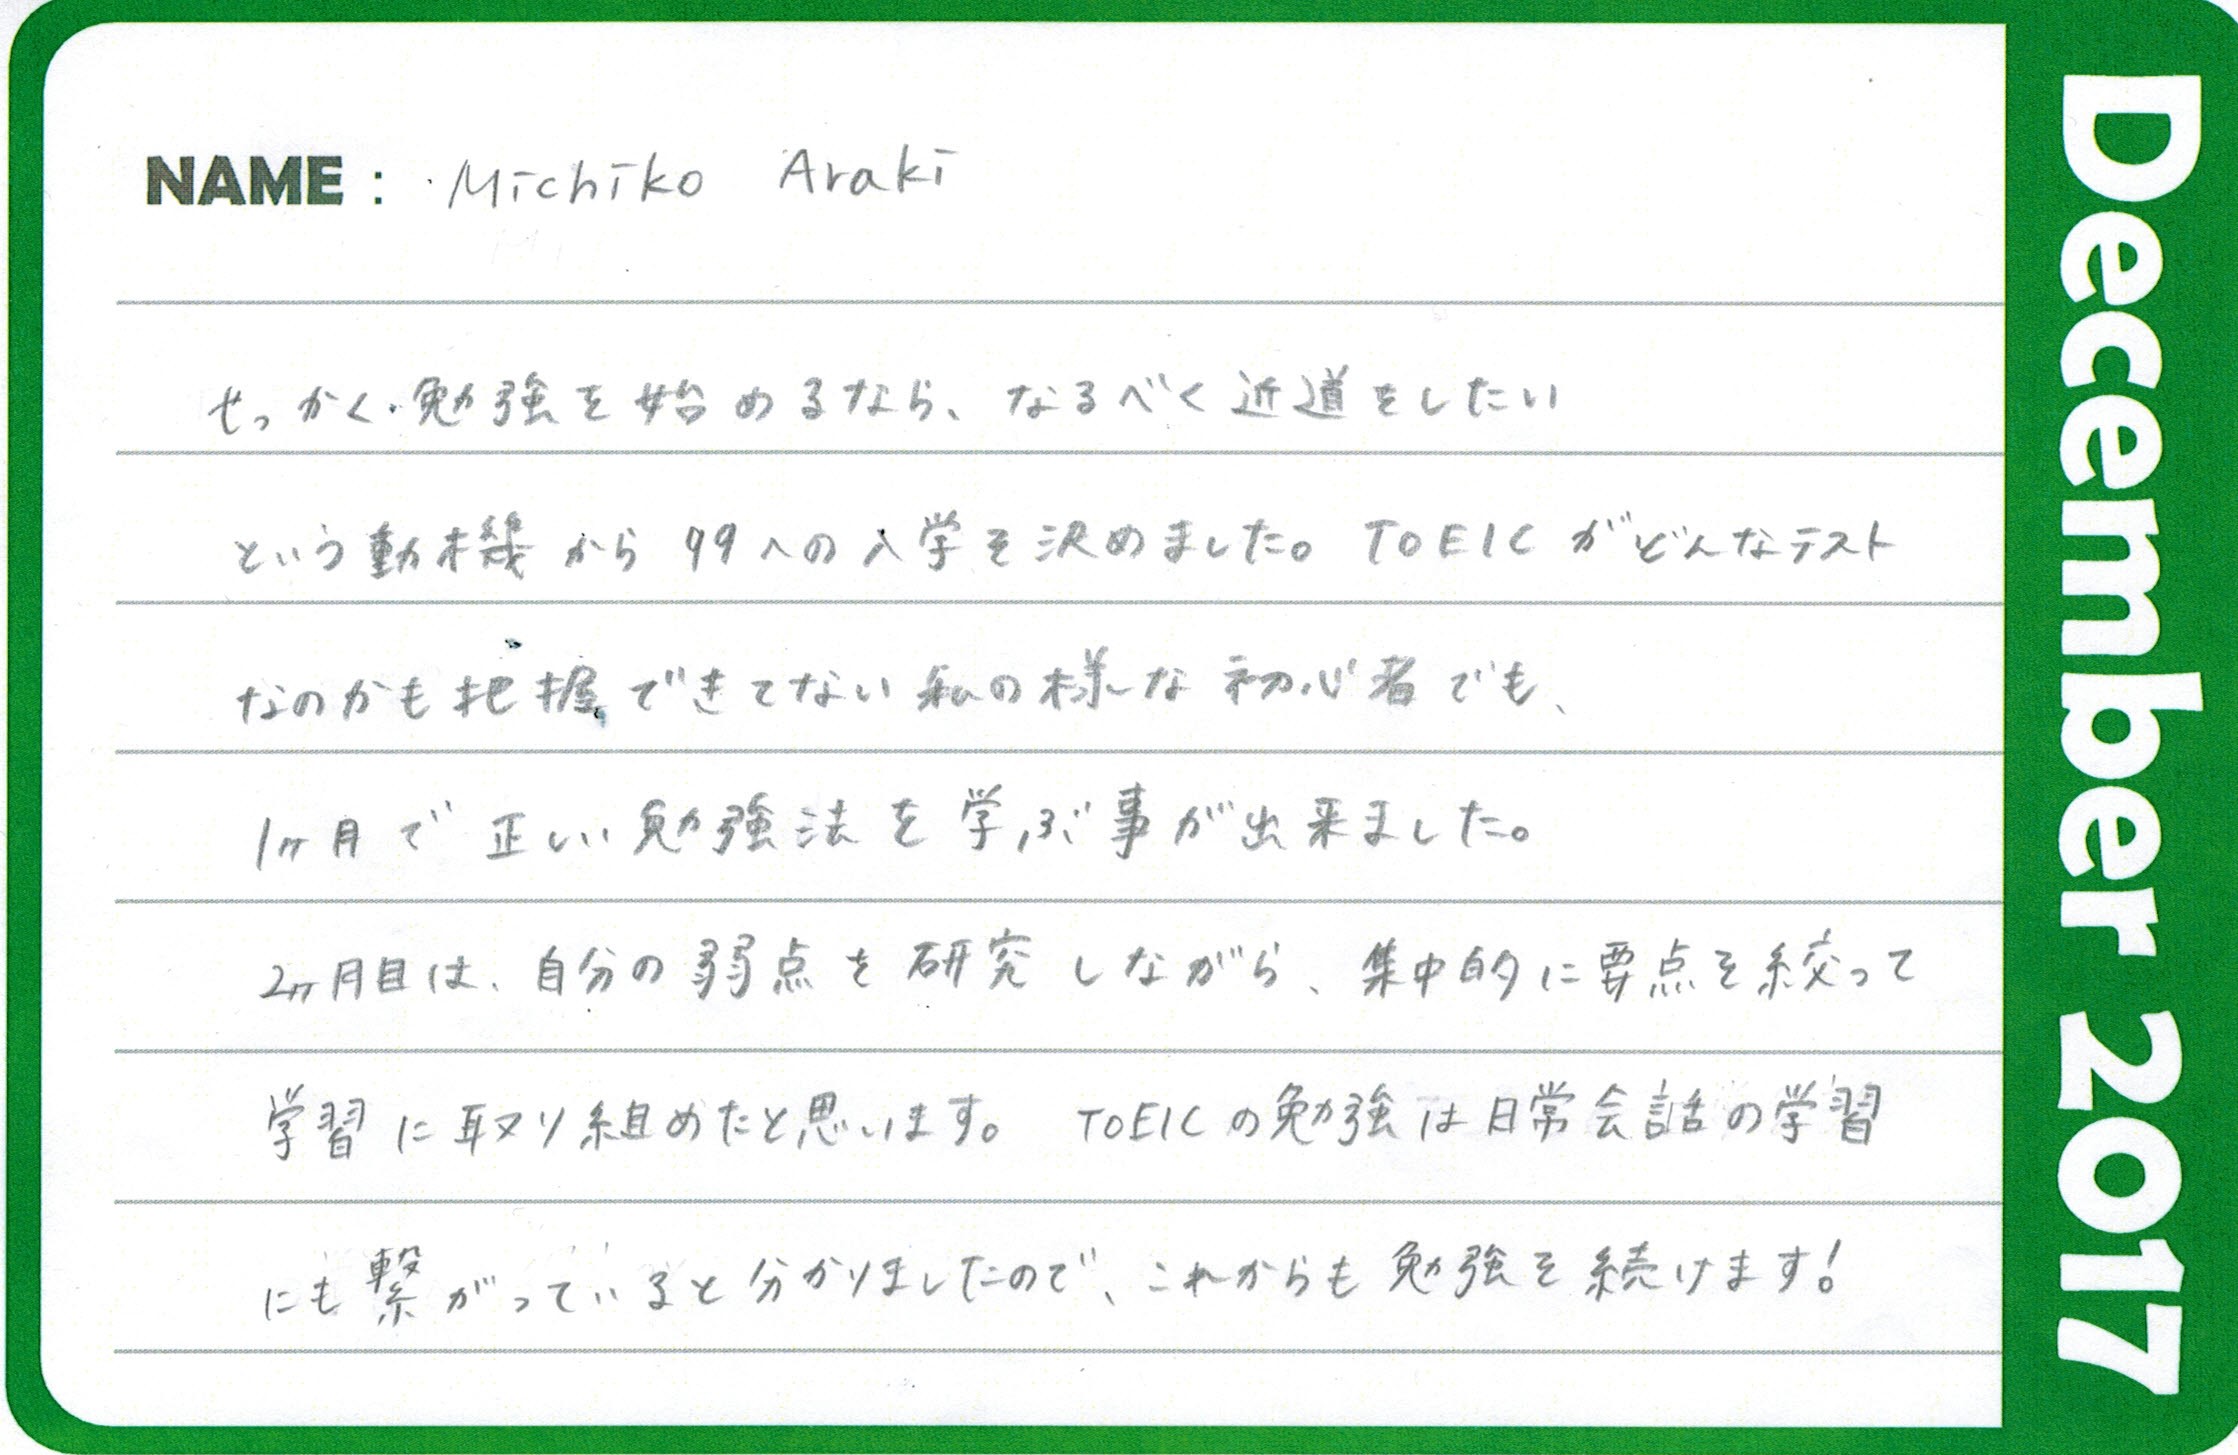 NAME : Michiko Araki
せっかく勉強を始めるなら、なるべく近道をしたい
という動機から99への入学を決めました。TOEICがどんなテスト
なのかも把握できてない私の様な初心者でも、
1ヶ月で正しい勉強法を学ぶ事が出来ました。
2ヶ月目は、自分の弱点を研究しながら、集中的に要点を絞って
学習に取り組めたと思います。TOEICの勉強は日常会話の学習
にも繋がっていると分かりましたので、これからも勉強を続けます!
December 2017